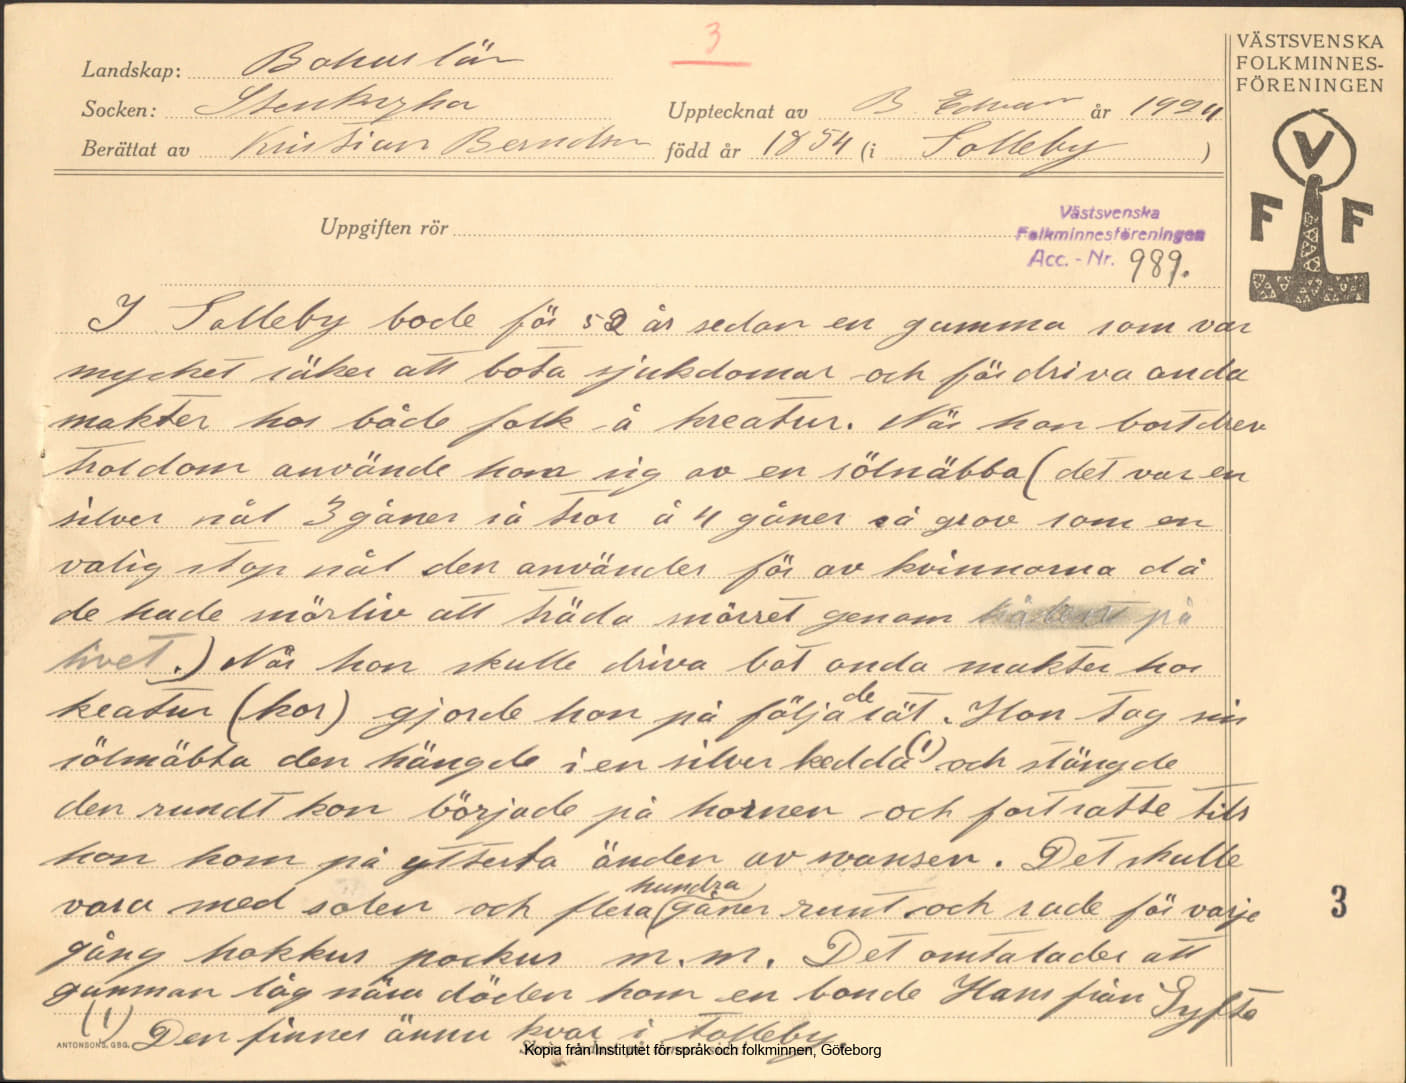 3
VÄSTSVENSKA
FOLKMINNES-
FÖRENINGEN
V
F F
Landskap: Bohuslän
Socken: Stenkyrka
Upptecknat av B. Edwar år 1924
Berättat av Kristian Berndtson född år 1854 (i Tolleby)
Uppgiften rör
Västsvenska
Folkminnesföreningen
Acc. - Nr. 989.
I Tolleby bode för 52 år sedan en gumma som var
mycket säker att bota sjukdomar och fördriva onda
makter hos både folk å kreatur. När hon bortdrev
troldom använde hon sig av en sölnäbba (det var en
silver nål 3 gåner så stor å 4 gåner så grov som en
valig stop nål den användes för av kvinnorna då
de hade snörliv att träda snörret genom på
livet.) När hon skulle driva bot onda makter hos
keatur (kor) gjorde hon på följade sät. Hon tog sin
sölnäbba den hängde i en silver kedda (1) och stängde
den rundt kon började på hornen och fortsatte tils
hon kom på yttersta änden av svansen. Det skulle
vara med solen och flera hundra gåner runt och sade för varje
gång hokkus pockus m.m. Det omtalades att
gumman låg nära döden kom en bonde Hans från Syfte
(1) Den finnes ännu kvar i Tolleby.
ANTONSONS, GBG.
Kopia från Institutet för språk och folkminnen, Göteborg
3